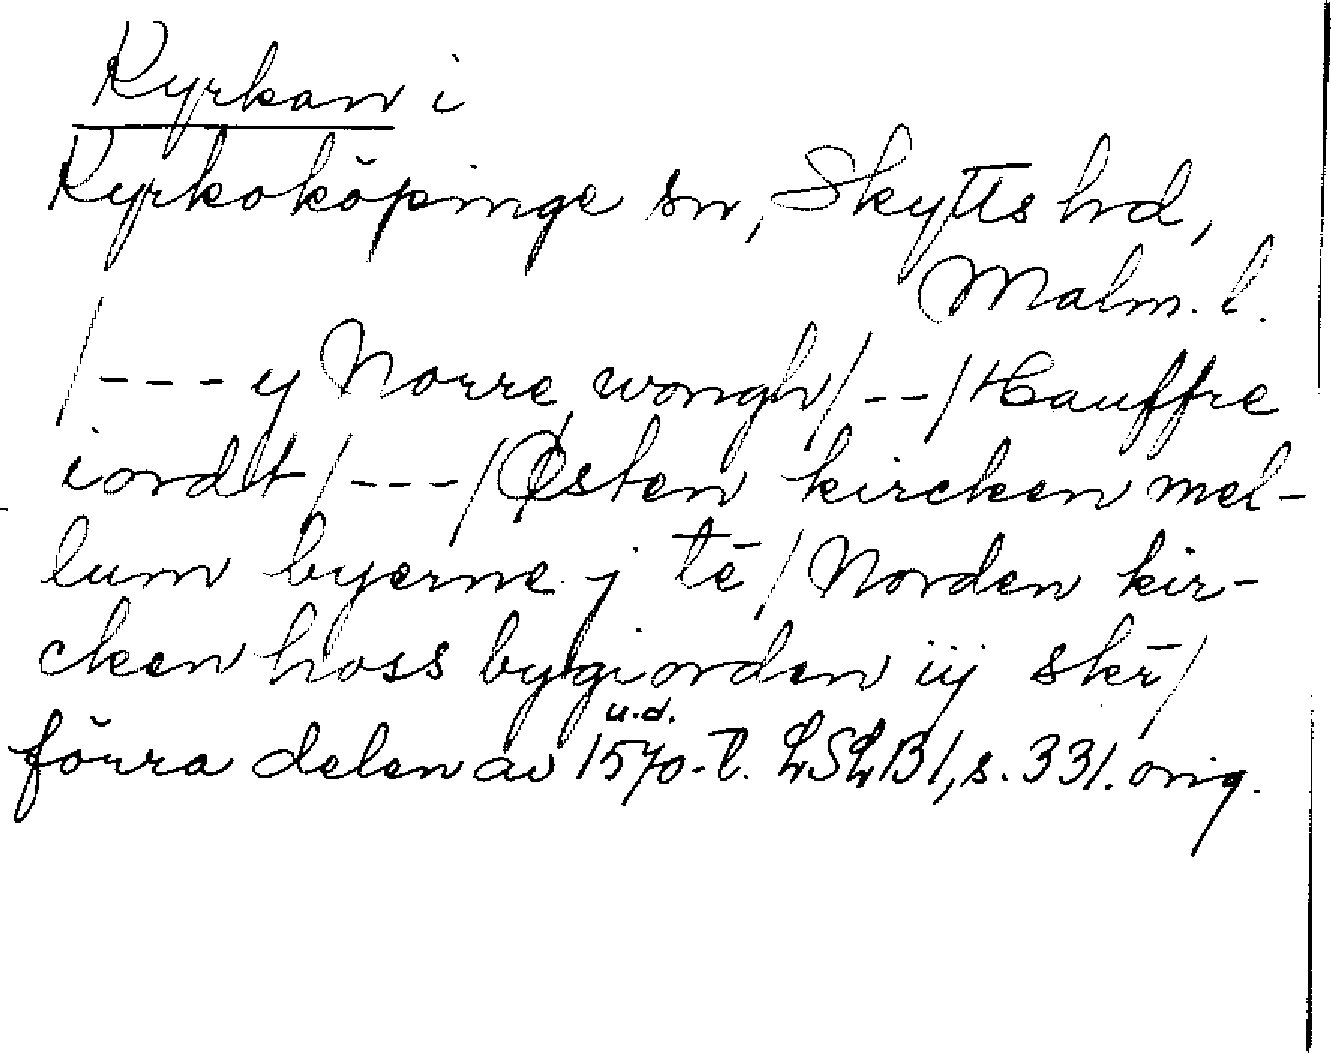 Kyrkan i
Kyrkoköpinge sn, Skytts hd,
Malm. l.
/---y Norre wongh/--/Hauffre
iordt/---/Østen kircken mel-
lum byerne j tē/Norden kir-
cken hoss bygiorden iij skr̄/
u.d.
förra delen av 1570-t. LSLB1, s. 331. orig.